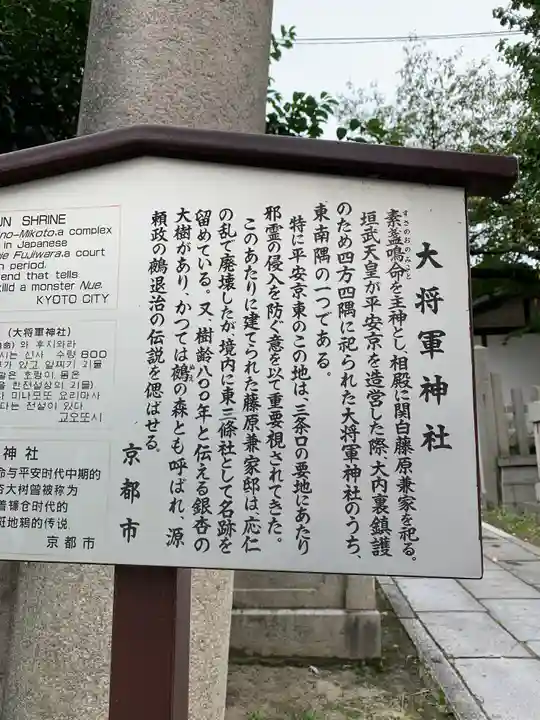 大将軍神社
素盞鳴命を主神とし相殿に関白藤原兼家を祀る。
すさのおのみこと
垣武天皇が平安京を造営した際、大内裏鎮護
のため四方四隅に祀られた大将軍神社のうち、
東南隅の一つである。
特に平安京東のこの地は、三条口の要地にあたり
邪霊の侵入を防ぐ意を以て重要視されてきた。
このあたりに建てられた藤原兼家邸は、応仁
の乱で廃壊したが境内に東三條社として名跡を
留めている。又、樹齢八〇〇年と伝える銀杏の
大樹があり、かつては鵺の森とも呼ばれ、源
ぬえ
頼政の鵺退治の伝説を偲ばせる。
京都市
UN SHRINE
no-Mikoto.a complex
in Japanese
e Fujiwara.a court
n period.
end that tells
killd a monster Nue.
KYOTO CITY
(大将軍神社)
命) 와 후지와라
시는 신사 수령 800
무가 있고 일찌기 괴물
팔은 호랑이 몸은
을 한전설상의 괴물)
지 미나모토 요리마사
다는 전설이 있다
교오또시
神社
命与平安时代中期的
杏大树曾被称为
着镰仓时代的
斑地鸫的传说.
京都市